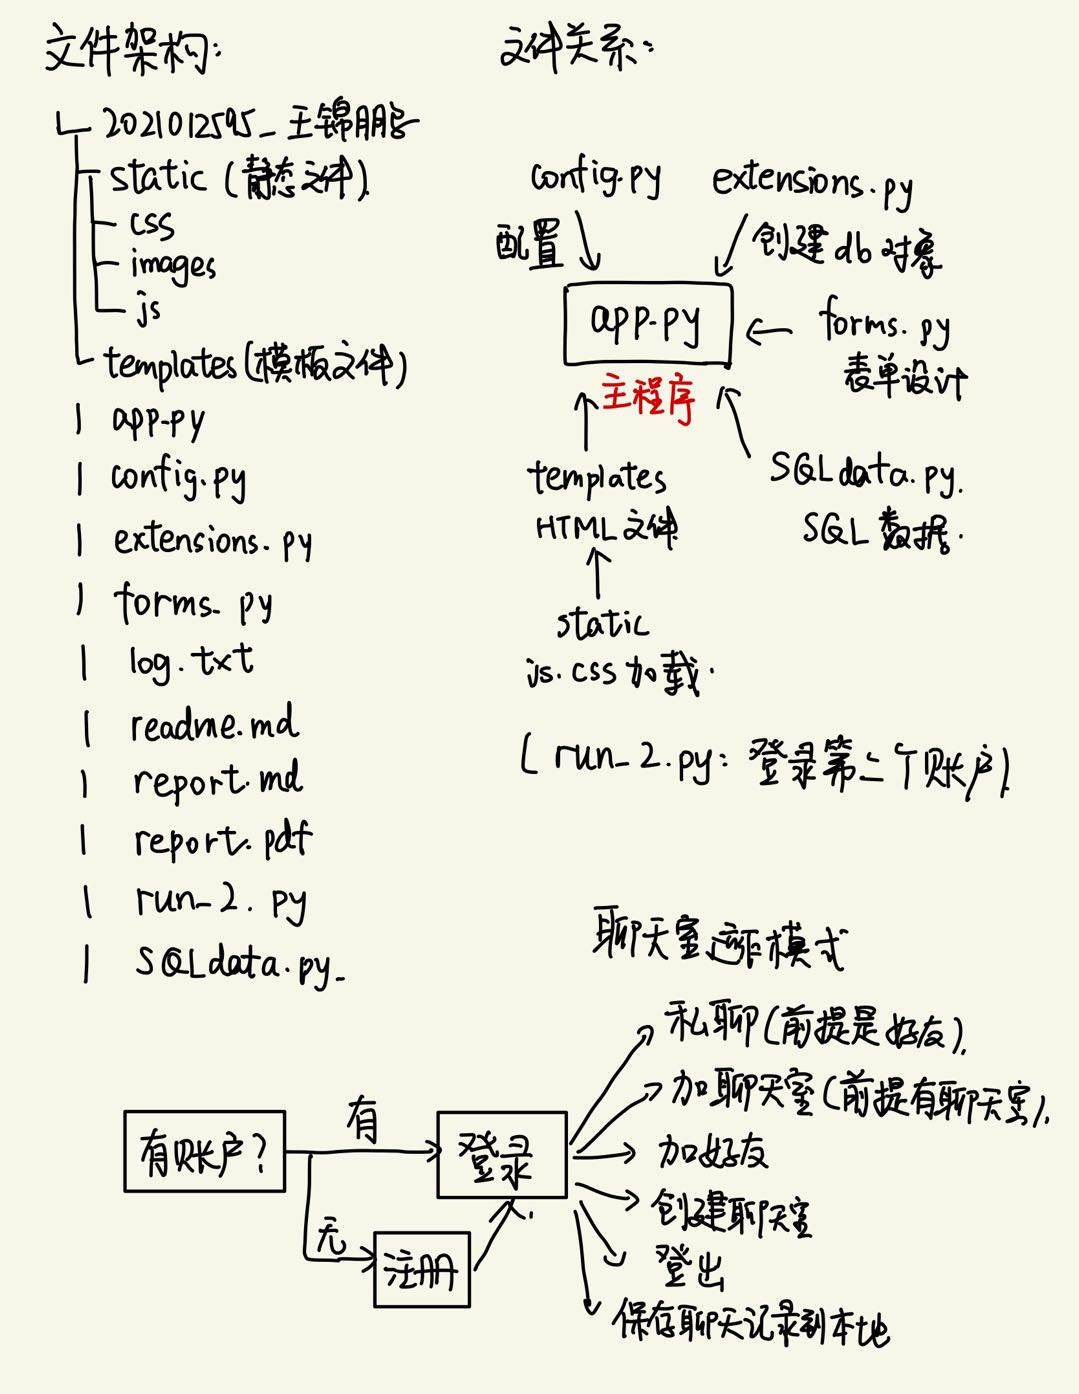 文件架构:
2021012595_王锦鹏
static (静态文件).
css
images
js
templates(模板文件)
app.py
config.py
extensions.py
forms.py
log.txt
readme.md
report.md
report.pdf
run_2.py
SQLdata.py
文件关系:
config.py
extensions.py
配置
创建db对象
app.py
forms.py
表单设计
主程序
templates
HTML文件
SQLdata.py.
SQL数据.
static
js.css加载.
(run_2.py: 登录第二个账户)
聊天室运作模式
私聊(前提是好友).
加聊天室(前提有聊天室).
有
有账户?
登录
加好友
创建聊天室
无
注册
登出
保存聊天记录到本地